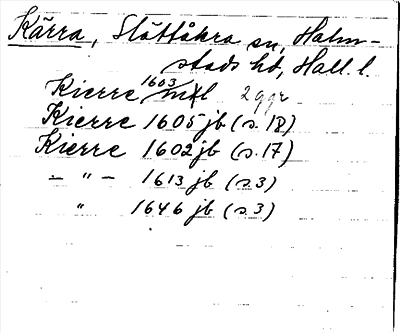 Kärra, Slättåkra sn, Halm-
stads hd, Hall. l.
Kierre 1603 mtl 2 ggr
Kierre 1605 jb (s. 18)
Kierre 1602 jb (s. 17)
– " – 1613 jb (s. 3)
" 1646 jb (s. 3)